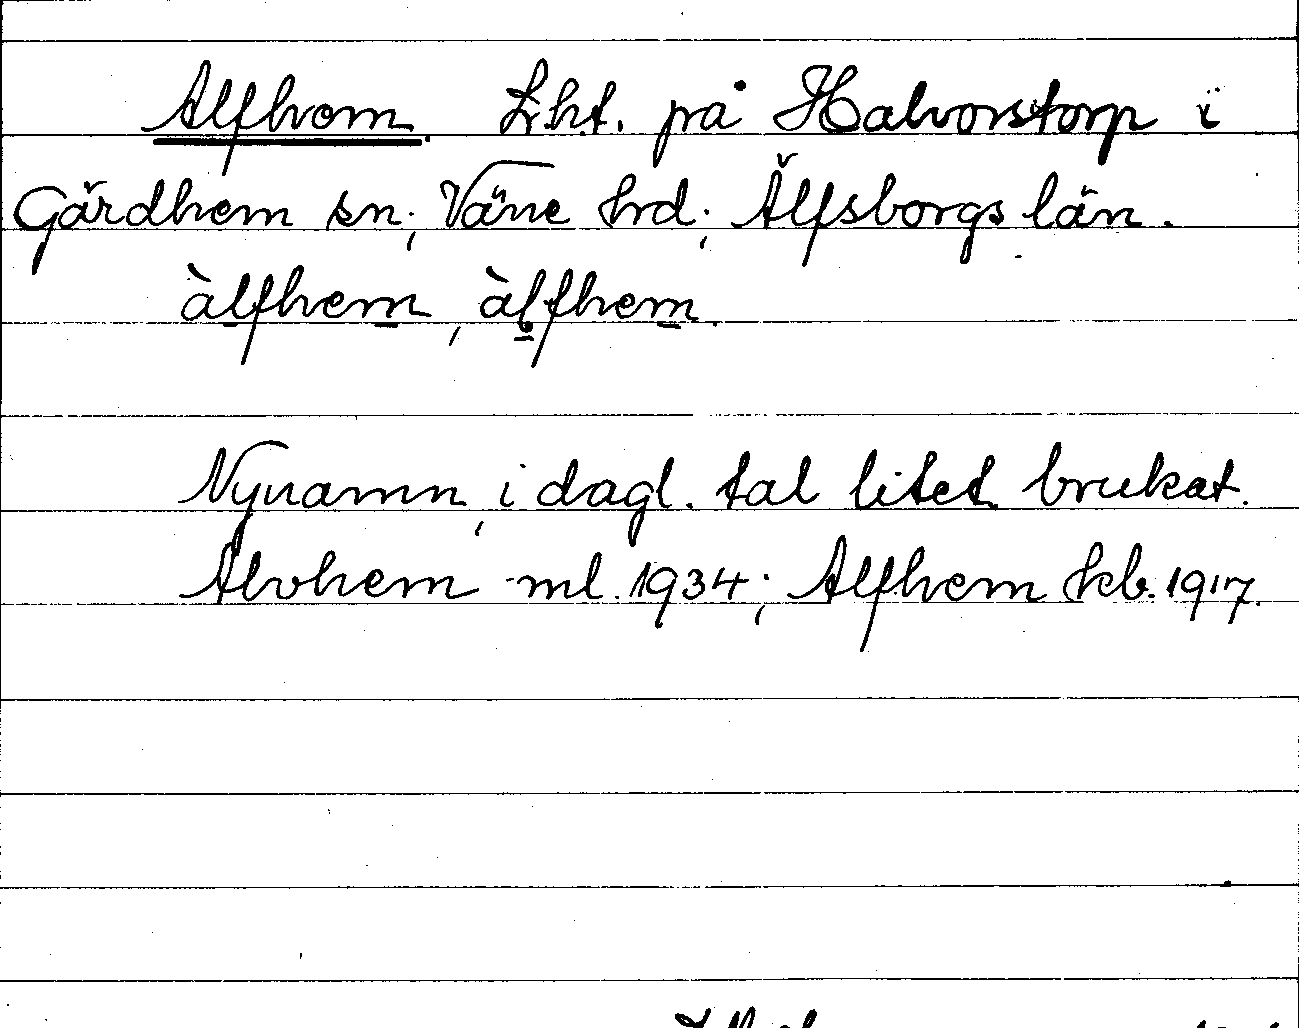 Alfhem. Lht. på Halvorstorp i
Gärdhem sn; Väne hrd; Älfsborgs län.
àlfhem, àlfhem.
Nynamn, i dagl. tal litet brukat.
Alvhem ml. 1934; Alfhem kb. 1917.